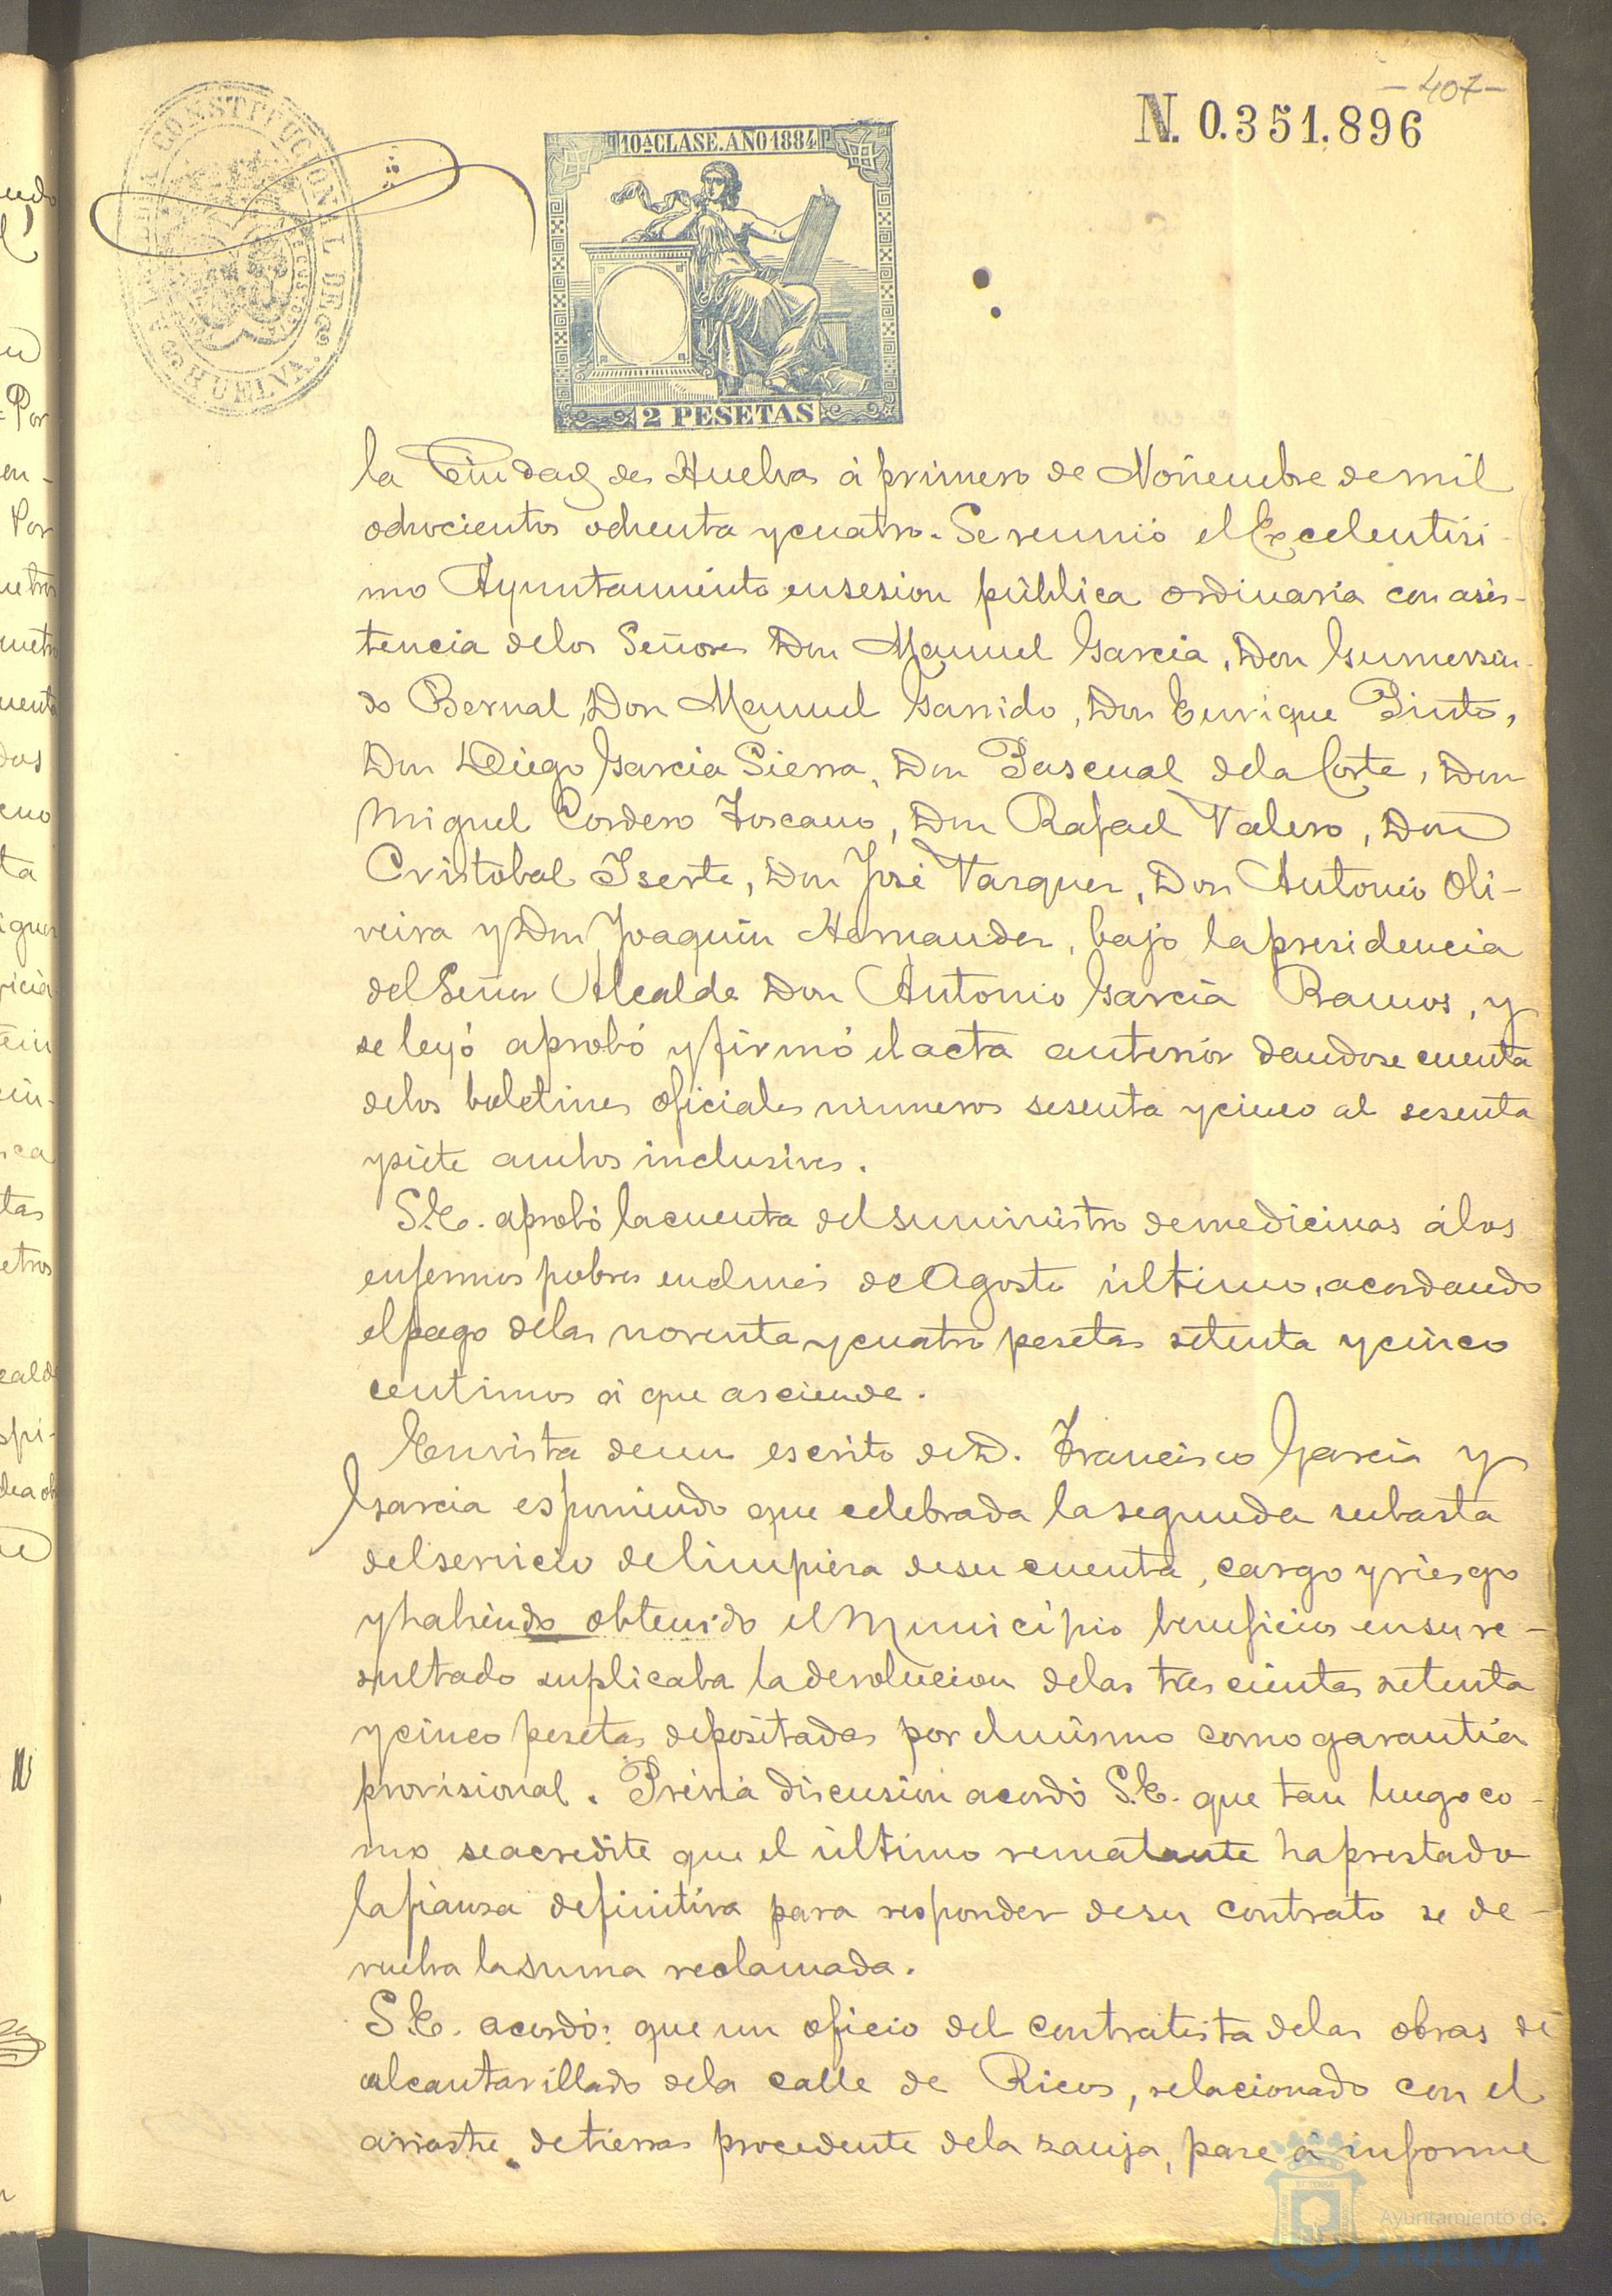 - 407 -
N. 0.351.896
CONSTITUCIONAL DE
HUELVA.
10ª CLASE. AÑO 1884
2 PESETAS
la Ciudad de Huelva á primero de Noviembre de mil
ochocientos ochenta y cuatro. Se reunió el Excelentisi-
mo Ayuntamiento en sesion pública ordinaria con asis-
tencia de los Señores Don Manuel Garcia, Don Gumersin-
do Bernal, Don Manuel Garrido, Don Enrique Pinto,
Don Diego Garcia Sierra, Don Pascual de la Corte, Don
Miguel Cordero Toscano, Don Rafael Valero, Don
Cristobal Iserte, Don José Vazquez, Don Antonio Oli-
veira y Don Joaquin Hernandez, bajo la presidencia
del Señor Alcalde Don Antonio Garcia Ramos, y
se leyó aprobó y firmó el acta anterior dandose cuenta
de los boletines oficiales numeros sesenta y cinco al sesenta
y siete ambos inclusives.
S.E. aprobó la cuenta del suministro de medicinas á los
enfermos pobres en el mes de Agosto último, acordando
el pago de las noventa y cuatro pesetas setenta y cinco
centimos á que asciende.
En vista de un escrito de D. Francisco Garcia y
Garcia esponiendo que celebrada la segunda subasta
del servicio de limpieza de su cuenta, cargo y riesgo
y habiendo obtenido el Municipio beneficios en su re-
sultado suplicaba la devolucion de las trescientas setenta
y cinco pesetas depositadas por el mismo como garantia
provisional. Prévia discusion acordó S.E. que tan luego co-
mo se acredite que el último rematante ha prestado
la fianza definitiva para responder de su contrato se de-
vuelva la suma reclamada.
S.E. acordó: que un oficio del contratista de las obras de
alcantarillado de la calle de Ricos, relacionado con el
arrastre de tierras procedente de la zanja, pase á informe
Ayuntamiento de
HUELVA